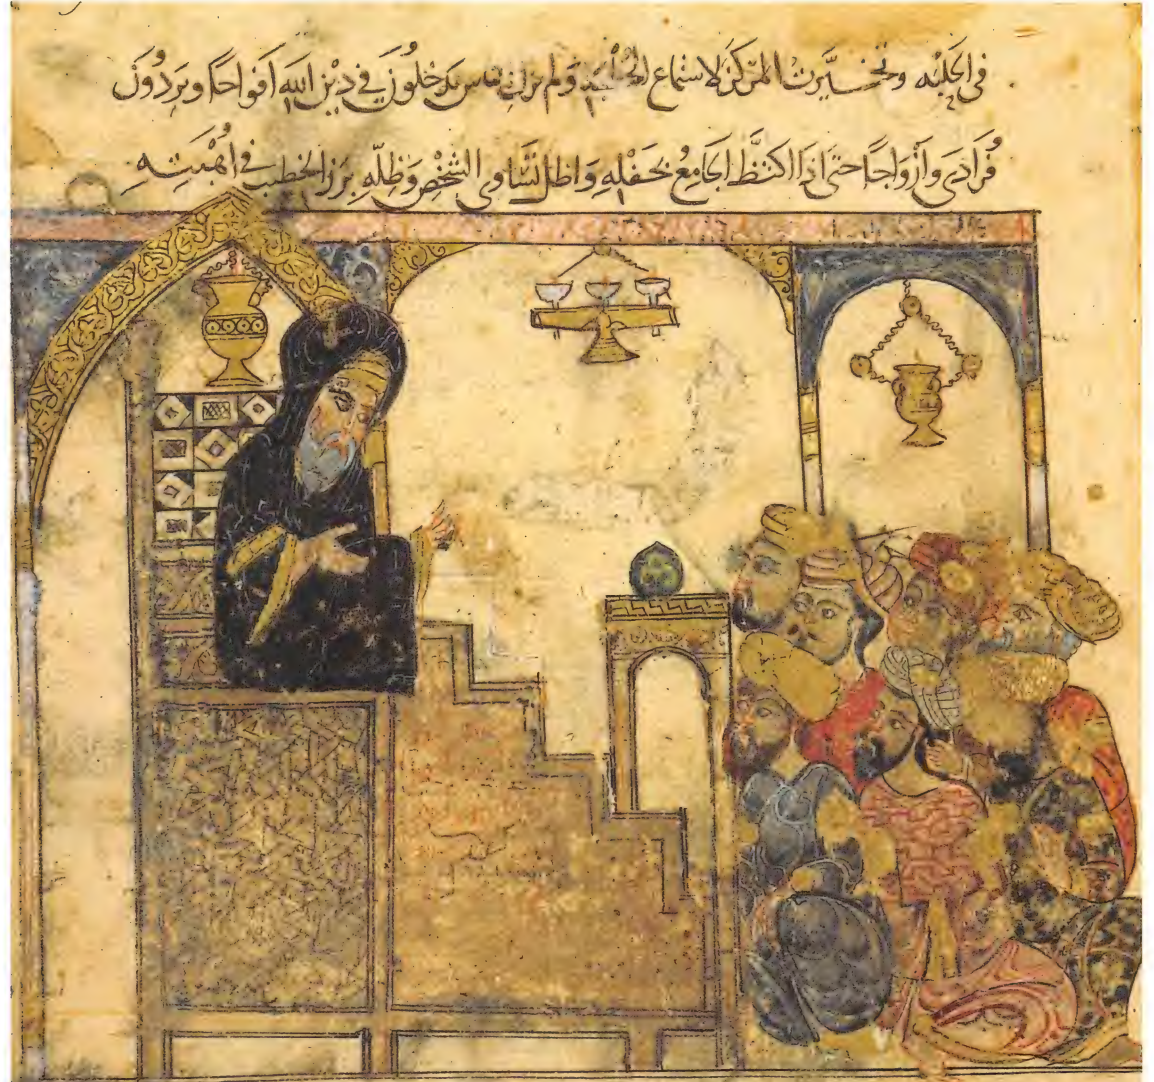 في الحلبه وتخيّرت المركز لاستماع الخُطبه ولم يزل الناس يدخلون في دِيْن الله افواجًا ويردُوْنَ
فُرَادَى وَأزْوَاجًا حتى اذا اكتظَّ الجامعُ بحَفْلِهِ وَاظلّ تَسَاوى الشخْصِ وَظِلّهِ برز الخطيب في أُهْبَتِهِ